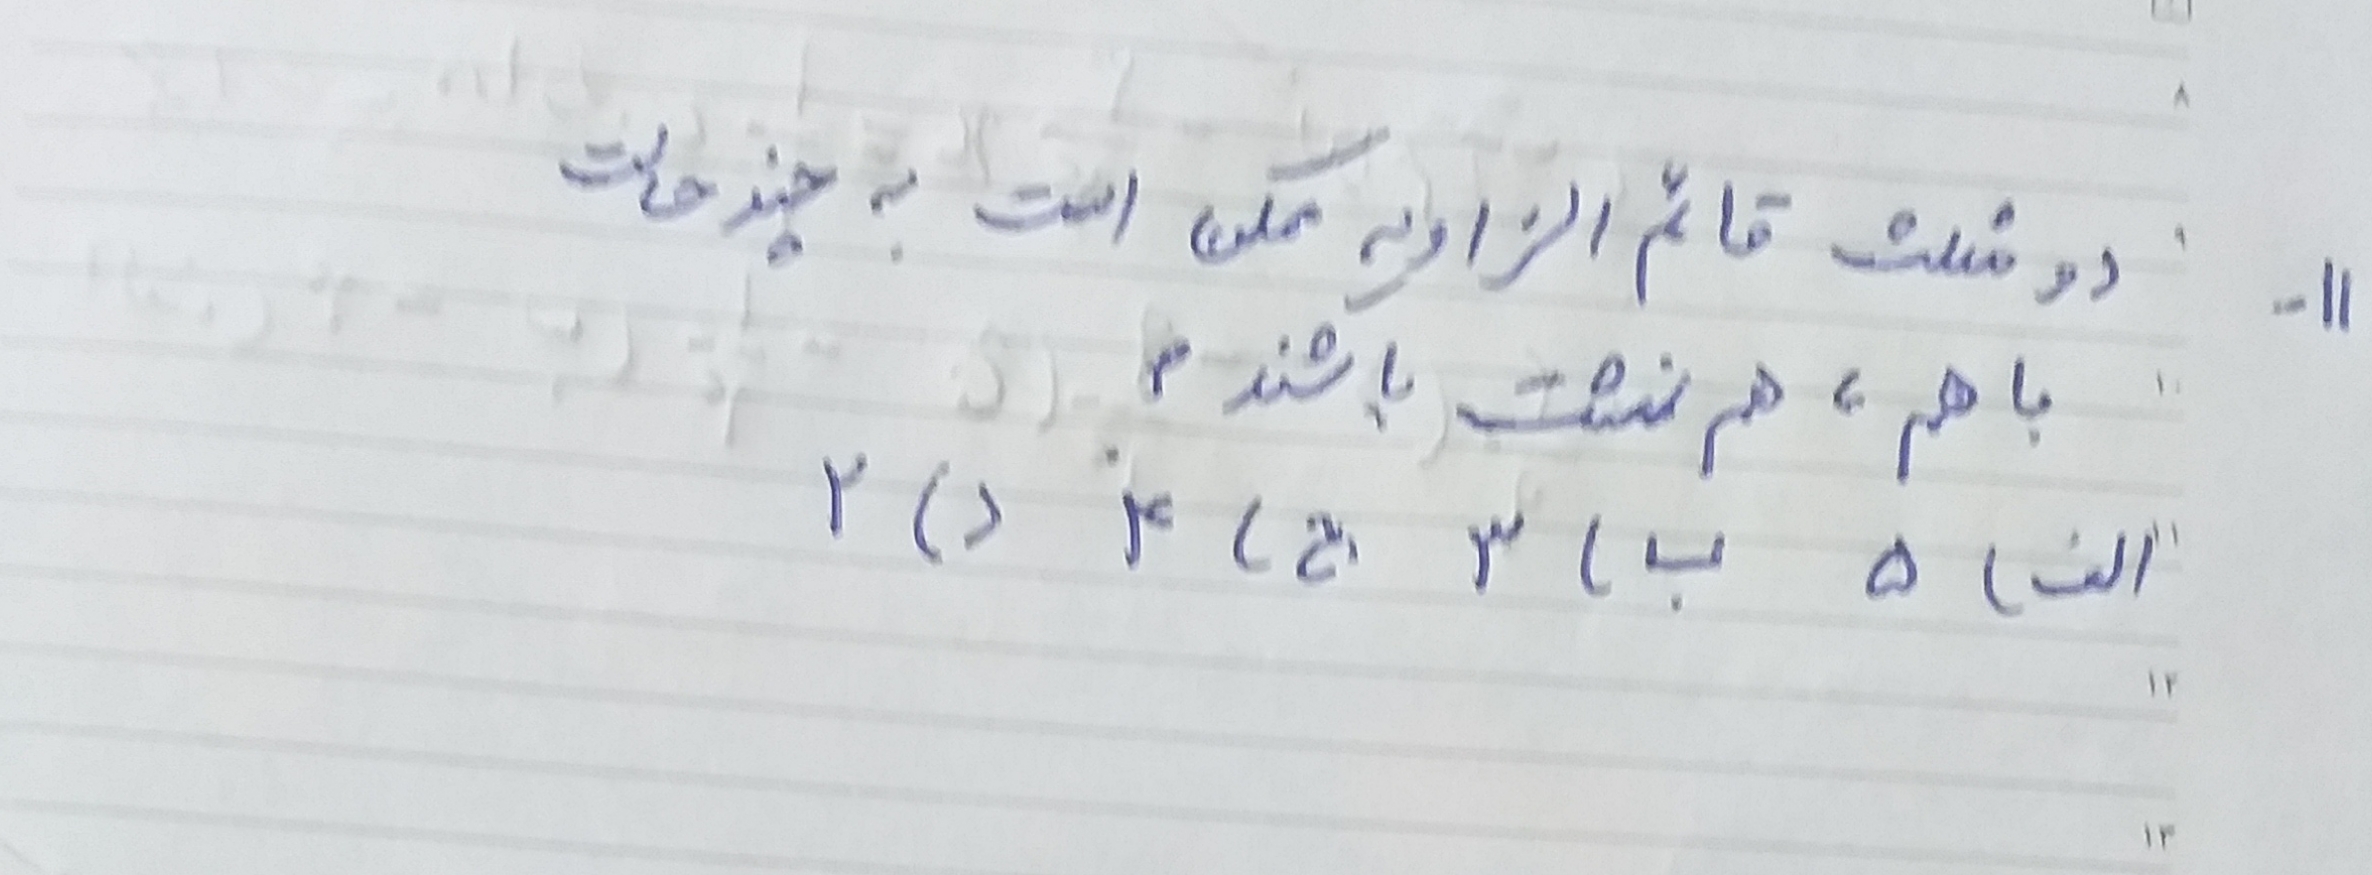 ۸
۹
۱۱- دو مثلث قائم الزاویه ممکن است به چند حالت
۱۰
با هم ، هم نهشت باشند ؟
۱۱
الف) ۵ ب) ۳ ج) ۴ د) ۲
۱۲
۱۳